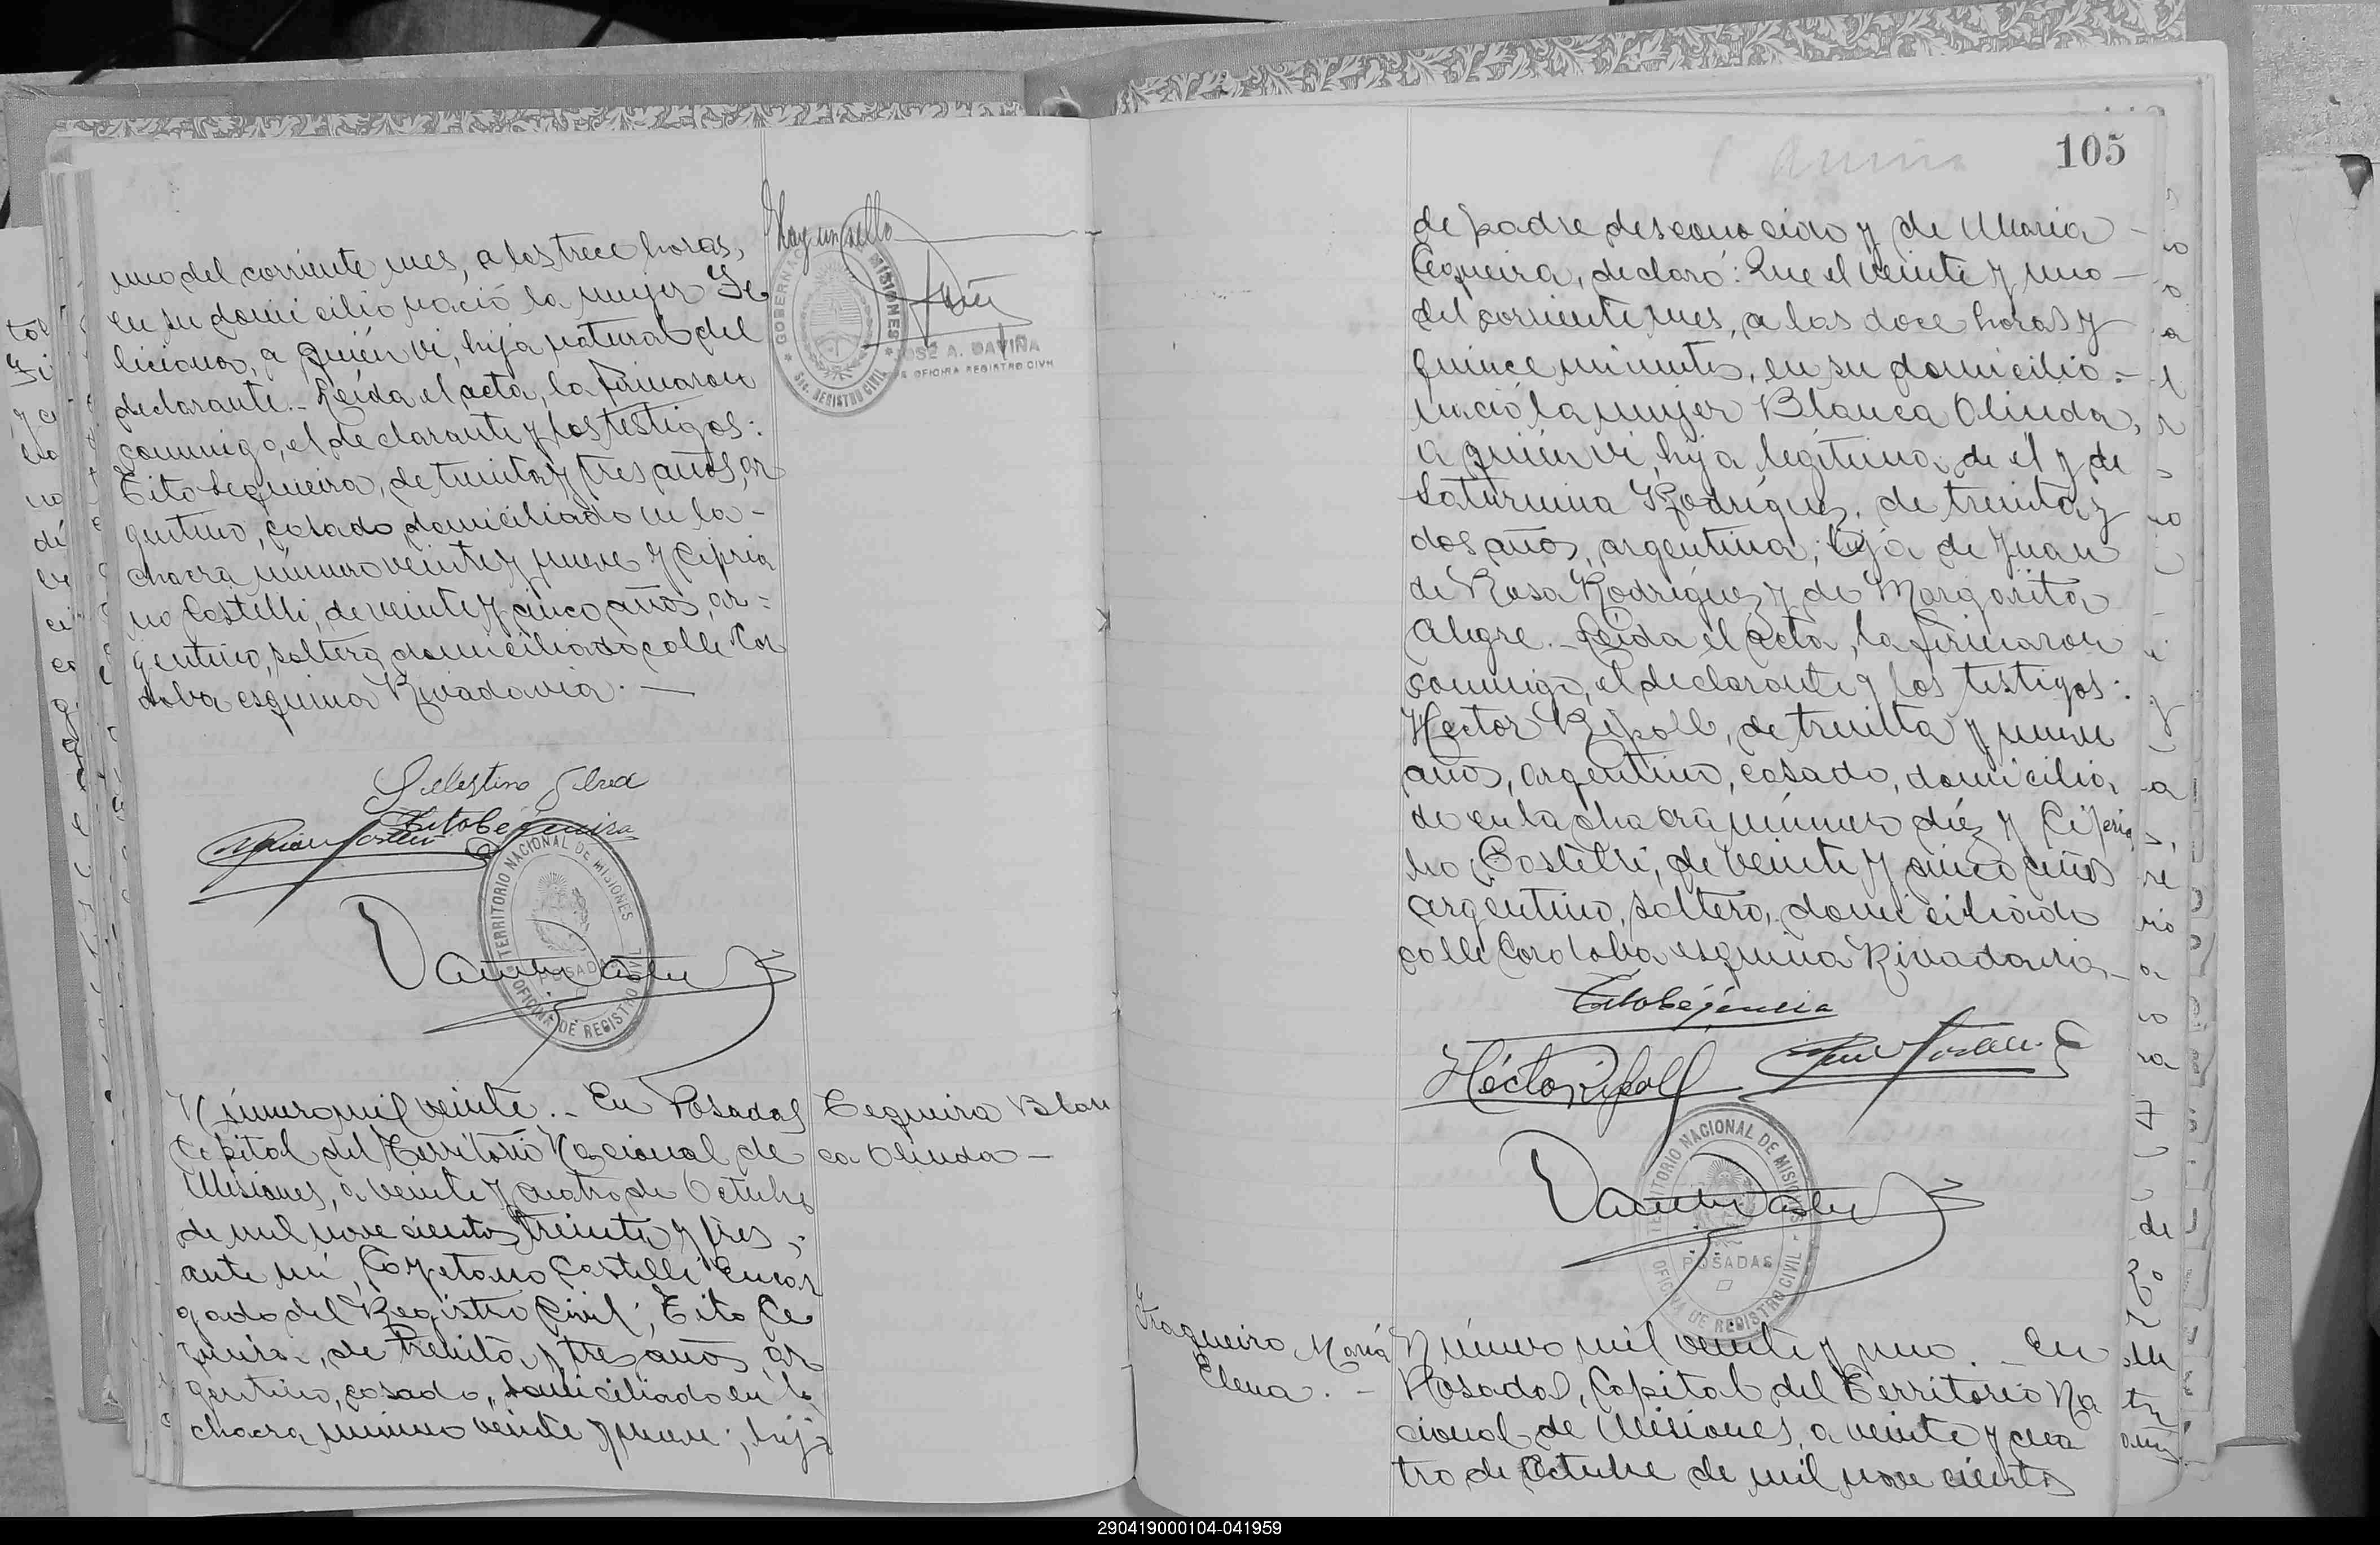 uno del corriente mes, a las trece horas,
en su domicilio nació la mujer Fe
liciana, a quién vi, hija natural del
declarante.- Leída el acta, la firmaron
conmigo, el declarante y los testigos:
Tito Cequeira, de treinta y tres años, ar
gentino, casado, domiciliado en la -
chacra número veinte y nueve y Cipria
no Castelli, de veinte y cinco años, ar=
gentino, soltero, domiciliado calle Cor
doba esquina Rivadavia. —
Hay un sello
GOBERNA MISIONES
SEC. REGISTRO CIVIL
JOSÉ A. DAVIÑA
OFICINA REGISTRO CIVIL
Selestino
Tito Cequeira
TERRITORIO NACIONAL DE MISIONES
POSADAS
OFICINA DE REGISTRO CIVIL
Número mil veinte.- En Posadas
Capital del Territorio Nacional de
Misiones, a veinte y cuatro de Octubre
de mil nove cientos treinta y tres,-
ante mí, Cayetano Castelli Encar
gado del Registro Civil; Tito Ce
queira, de treinta y tres años, ar
gentino, casado, domiciliado en la
chacra número veinte y nueve; hijo
Cequeira Blan
ca Olinda —
105
de padre desconocido y de Maria -
Cequeira, declaró: Que el veinte y uno -
del corriente mes, a las doce horas y
quince minutos, en su domicilio =
nació la mujer Blanca Olinda,
a quién vi, hija legítima de él y de
Saturnina Rodríguez, de treinta y
dos años, argentina; hija de Juan
de Rosa Rodríguez y de Margarita
Alegre.- Leída el acta, la firmaron
conmigo, el declarante y los testigos:
Hector Ripoll, de treinta y nueve
años, argentino, casado, domicilia
do en la chacra número diéz y Cipria
no Castelli, de veinte y cinco años
argentino, soltero, domiciliado
calle Cordoba esquina Rivadavia -
Tito Cequeira
Héctor Ripoll
TERRITORIO NACIONAL DE MISIONES
POSADAS
OFICINA DE REGISTRO CIVIL
Fraqueiro María
Elena. -
Número mil veinte y uno. - En
Posadas, Capital del Territorio Na
cional de Misiones, a veinte y cua
tro de Octubre de mil nove cientos
290419000104-041959